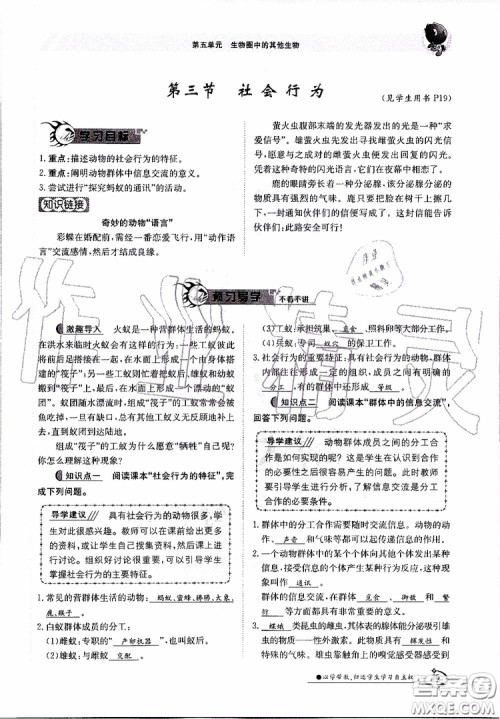 第五单元 生物圈中的其他生物
第三节 社会行为
(见学生用书 P19)
学习目标
1. 重点:描述动物的社会行为的特征。
2. 重点:阐明动物群体中信息交流的意义。
3. 尝试进行“探究蚂蚁的通讯”的活动。
知识链接
奇妙的动物“语言”
彩蝶在婚配前,需经一番恋爱飞行,用“动作语
言”交流感情,然后才结成良缘。
萤火虫腹部末端的发光器发出的光是一种“求
爱信号”。雄萤火虫先发出闪光信号,雌萤火虫如
愿意与之成婚,则雄萤火虫便得到回复的闪光。
凭着这种奇特的闪光语言,它们在夜幕中恋爱了。
鹿的眼睛旁长着一种分泌腺,该分泌腺分泌的
物质具有强烈的气味。鹿只要把脸在树干上擦几
下,就可以为同伴留下可靠的信号。这封信能告诉
伙伴们:此路安全可行!
预习导学
不看不讲
激趣导入 火蚁是一种营群体生活的蚂蚁,
在洪水来临时火蚁会有这样的行为:一些工蚁彼此
抱在一起,在水面上形成一个
的“筏子”;其他工蚁则忙着把
搬到筏子上,在水面上形成一个漂动的“蚁
团”。蚁团随水流漂动时,底下的工蚁常常会被
鱼吃掉,一旦有工蚁死掉,其他工蚁又无反顾地补
上去,直到到达陆地。
组成“筏子”的工蚁为什么愿意“牺牲”自己呢?
你怎么理解这种现象?
知识点一 阅读课本“社会行为的特征”,完
成下列问题。
导学建议 具有社会行为的动物很多,学
生对此很感兴趣。教师可以在课前给出更多
的资料,或让学生自己搜集资料,然后课上进
行讨论。组织好讨论很重要,可以引导学生
掌握社会行为的主要特征。
1. 常见的营群体生活的动物: 蚂蚁,蜜蜂,狒狒,大象,
鹿,猴子。
2. 白蚁群体成员的分工:
(1)雌蚁:专职的“ 产卵机器 ”,也叫蚁后。
(2)雄蚁:与雌蚁 交配 。
(3)工蚁:承担筑巢、 觅食 、照顾卵等多方面的工作。
(4)兵蚁:专司 蚁巢 的保卫工作。
3. 社会行为的重要特征:具有社会行为的动物,群体
内部往往形成一定的组织,成员之间有明确的
分工 ,有的群体中还形成 等级 。
知识点二 阅读课本“群体中的信息交流”,
回答下列问题。
导学建议 动物群体成员之间的分工合
作是如何实现的呢?这是学生在认识到分工合作
的必要性之后很容易产生的问题。此时教师
要引导学生进行分析,了解信息交流是分工
合作的前提。
1. 群体中的分工合作需要随时交流信息。动物的动
作、 声音 和气味等都可以起传递信息的作用。
2. 一个动物群体中的某个个体向其他个体发出某种
信息,接受信息的个体产生某种行为反应,这种
现象叫作 通讯 。
群体的信息交流,在群体 觅食 、 御敌 和 繁
衍 等方面都具有非常重要的意义。
3. 蝶蛾 类昆虫的雌虫体表的腺体能分泌吸引雄
虫的物质——性外激素。这类物质具有 挥发性 和特
殊气味。雄虫靠头上的嗅觉感受器感受到
以学带教,归还学生学习自主权